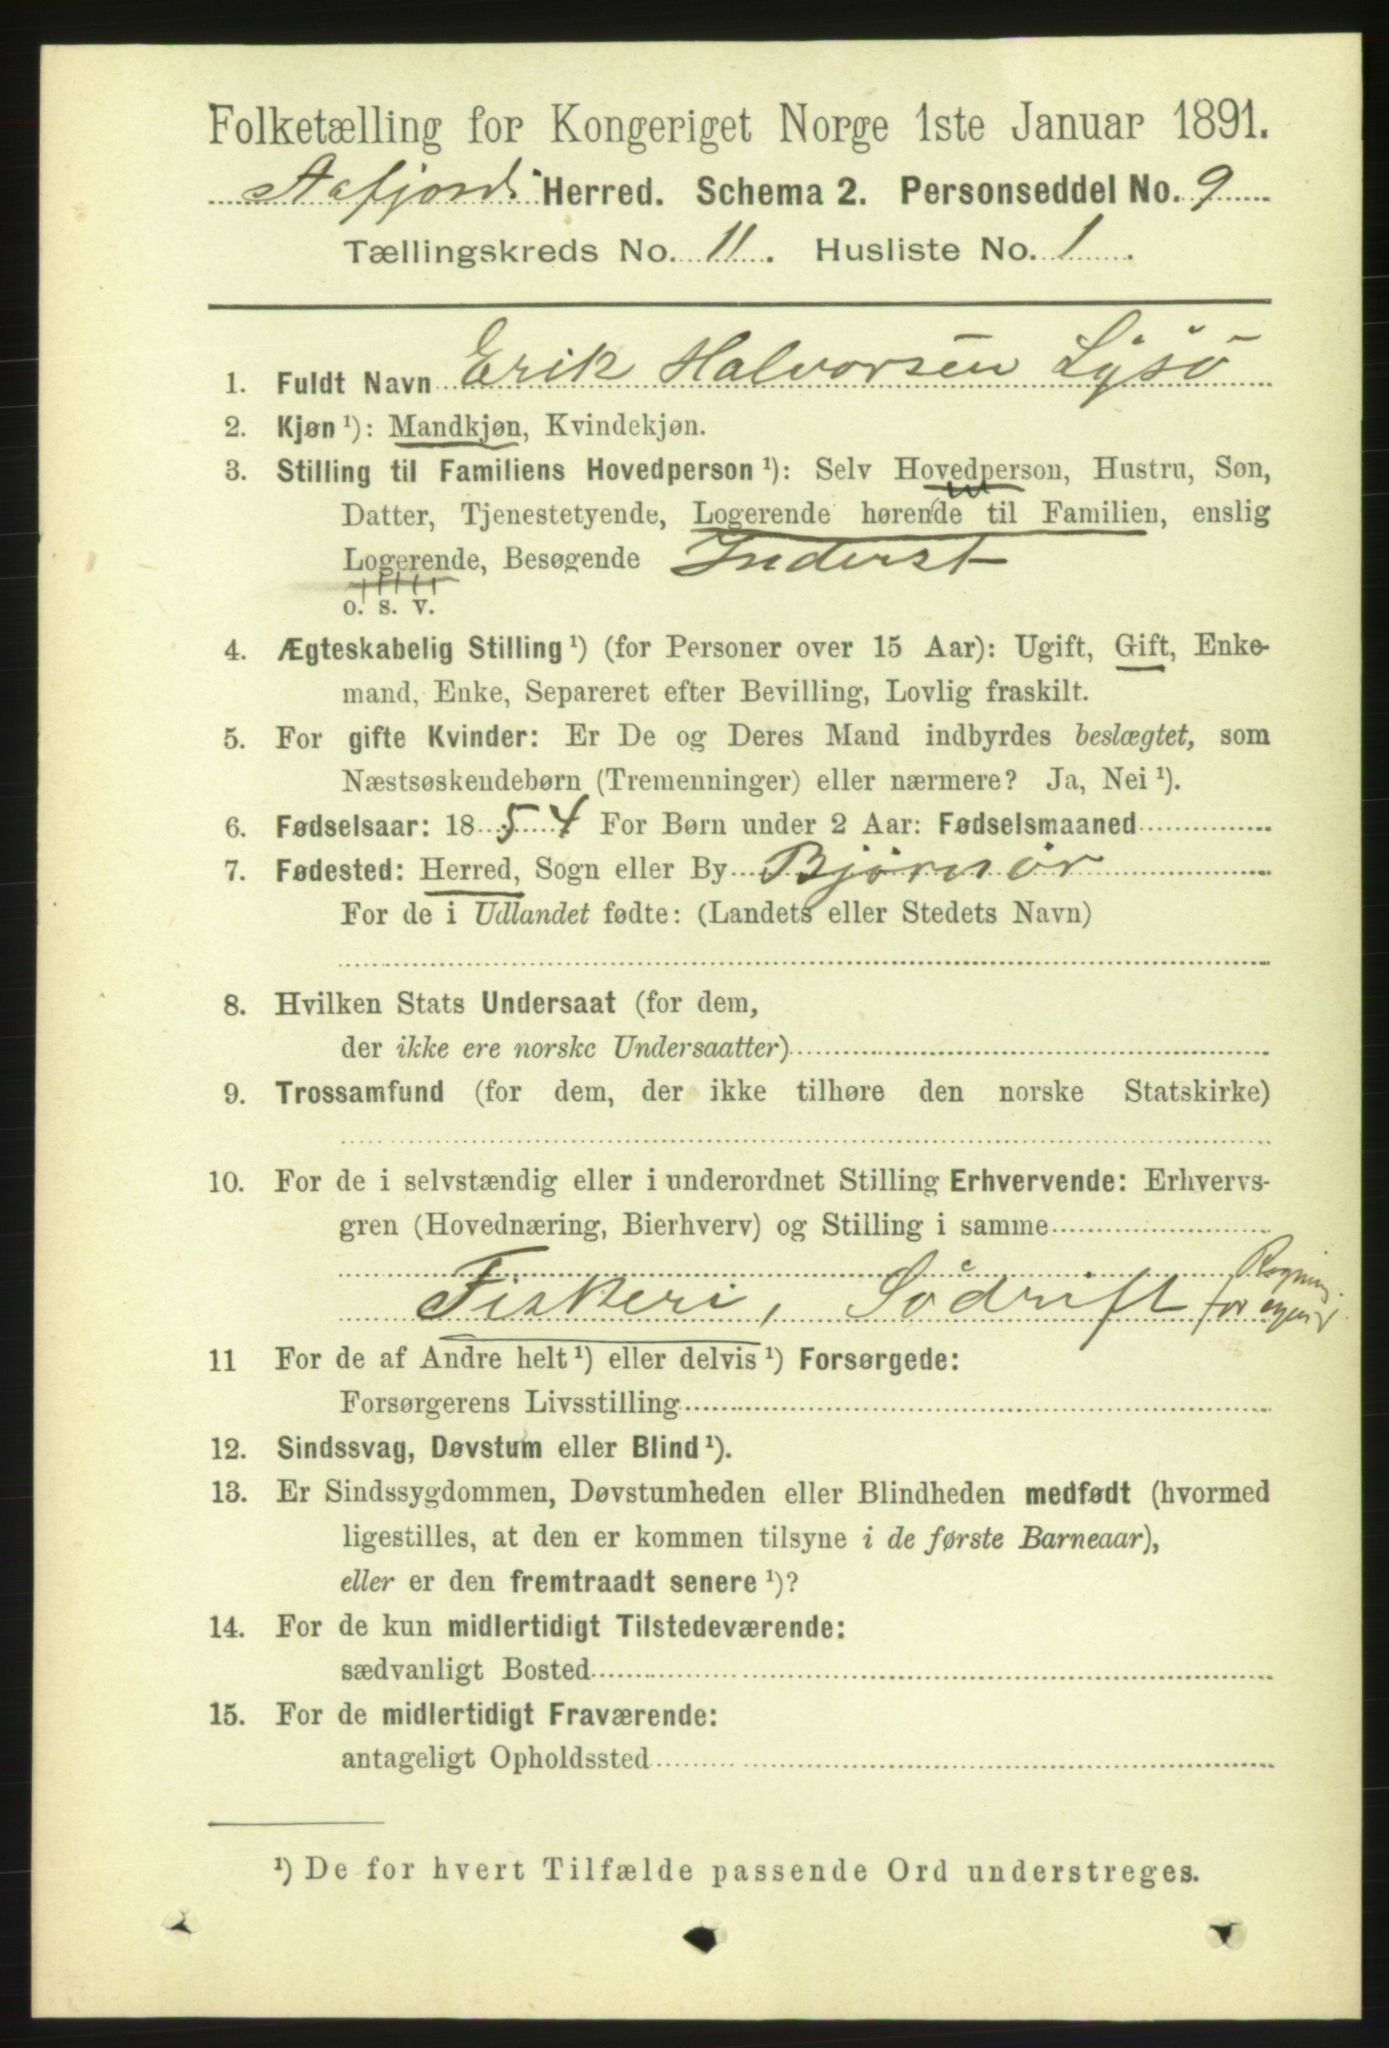 Folketælling for Kongeriget Norge 1ste Januar 1891.
Aafjords Herred. Schema 2. Personseddel No. 9
Tællingskreds No. 11. Husliste No. 1.
1. Fuldt Navn Erik Halvorsen Lysö
2. Kjøn ¹): Mandkjøn, Kvindekjøn.
3. Stilling til Familiens Hovedperson ¹): Selv Hovedperson, Hustru, Søn,
Datter, Tjenestetyende, Logerende hørende til Familien, enslig
Logerende, Besøgende Inderst
o. s. v.
4. Ægteskabelig Stilling ¹) (for Personer over 15 Aar): Ugift, Gift, Enke-
mand, Enke, Separeret efter Bevilling, Lovlig fraskilt.
5. For gifte Kvinder: Er De og Deres Mand indbyrdes beslægtet, som
Næstsøskendebørn (Tremenninger) eller nærmere? Ja, Nei ¹).
6. Fødselsaar: 1854 For Børn under 2 Aar: Fødselsmaaned
7. Fødested: Herred, Sogn eller By Bjørnør
For de i Udlandet fødte: (Landets eller Stedets Navn)
8. Hvilken Stats Undersaat (for dem,
der ikke ere norske Undersaatter)
9. Trossamfund (for dem, der ikke tilhøre den norske Statskirke)
10. For de i selvstændig eller i underordnet Stilling Erhvervende: Erhvervs-
gren (Hovednæring, Bierhverv) og Stilling i samme
Fiskeri, Södrift for egen
11 For de af Andre helt ¹) eller delvis ¹) Forsørgede:
Forsørgerens Livsstilling
12. Sindssvag, Døvstum eller Blind ¹).
13. Er Sindssygdommen, Døvstumheden eller Blindheden medfødt (hvormed
ligestilles, at den er kommen tilsyne i de første Barneaar),
eller er den fremtraadt senere ¹)?
14. For de kun midlertidigt Tilstedeværende:
sædvanligt Bosted
15. For de midlertidigt Fraværende:
antageligt Opholdssted
¹) De for hvert Tilfælde passende Ord understreges.